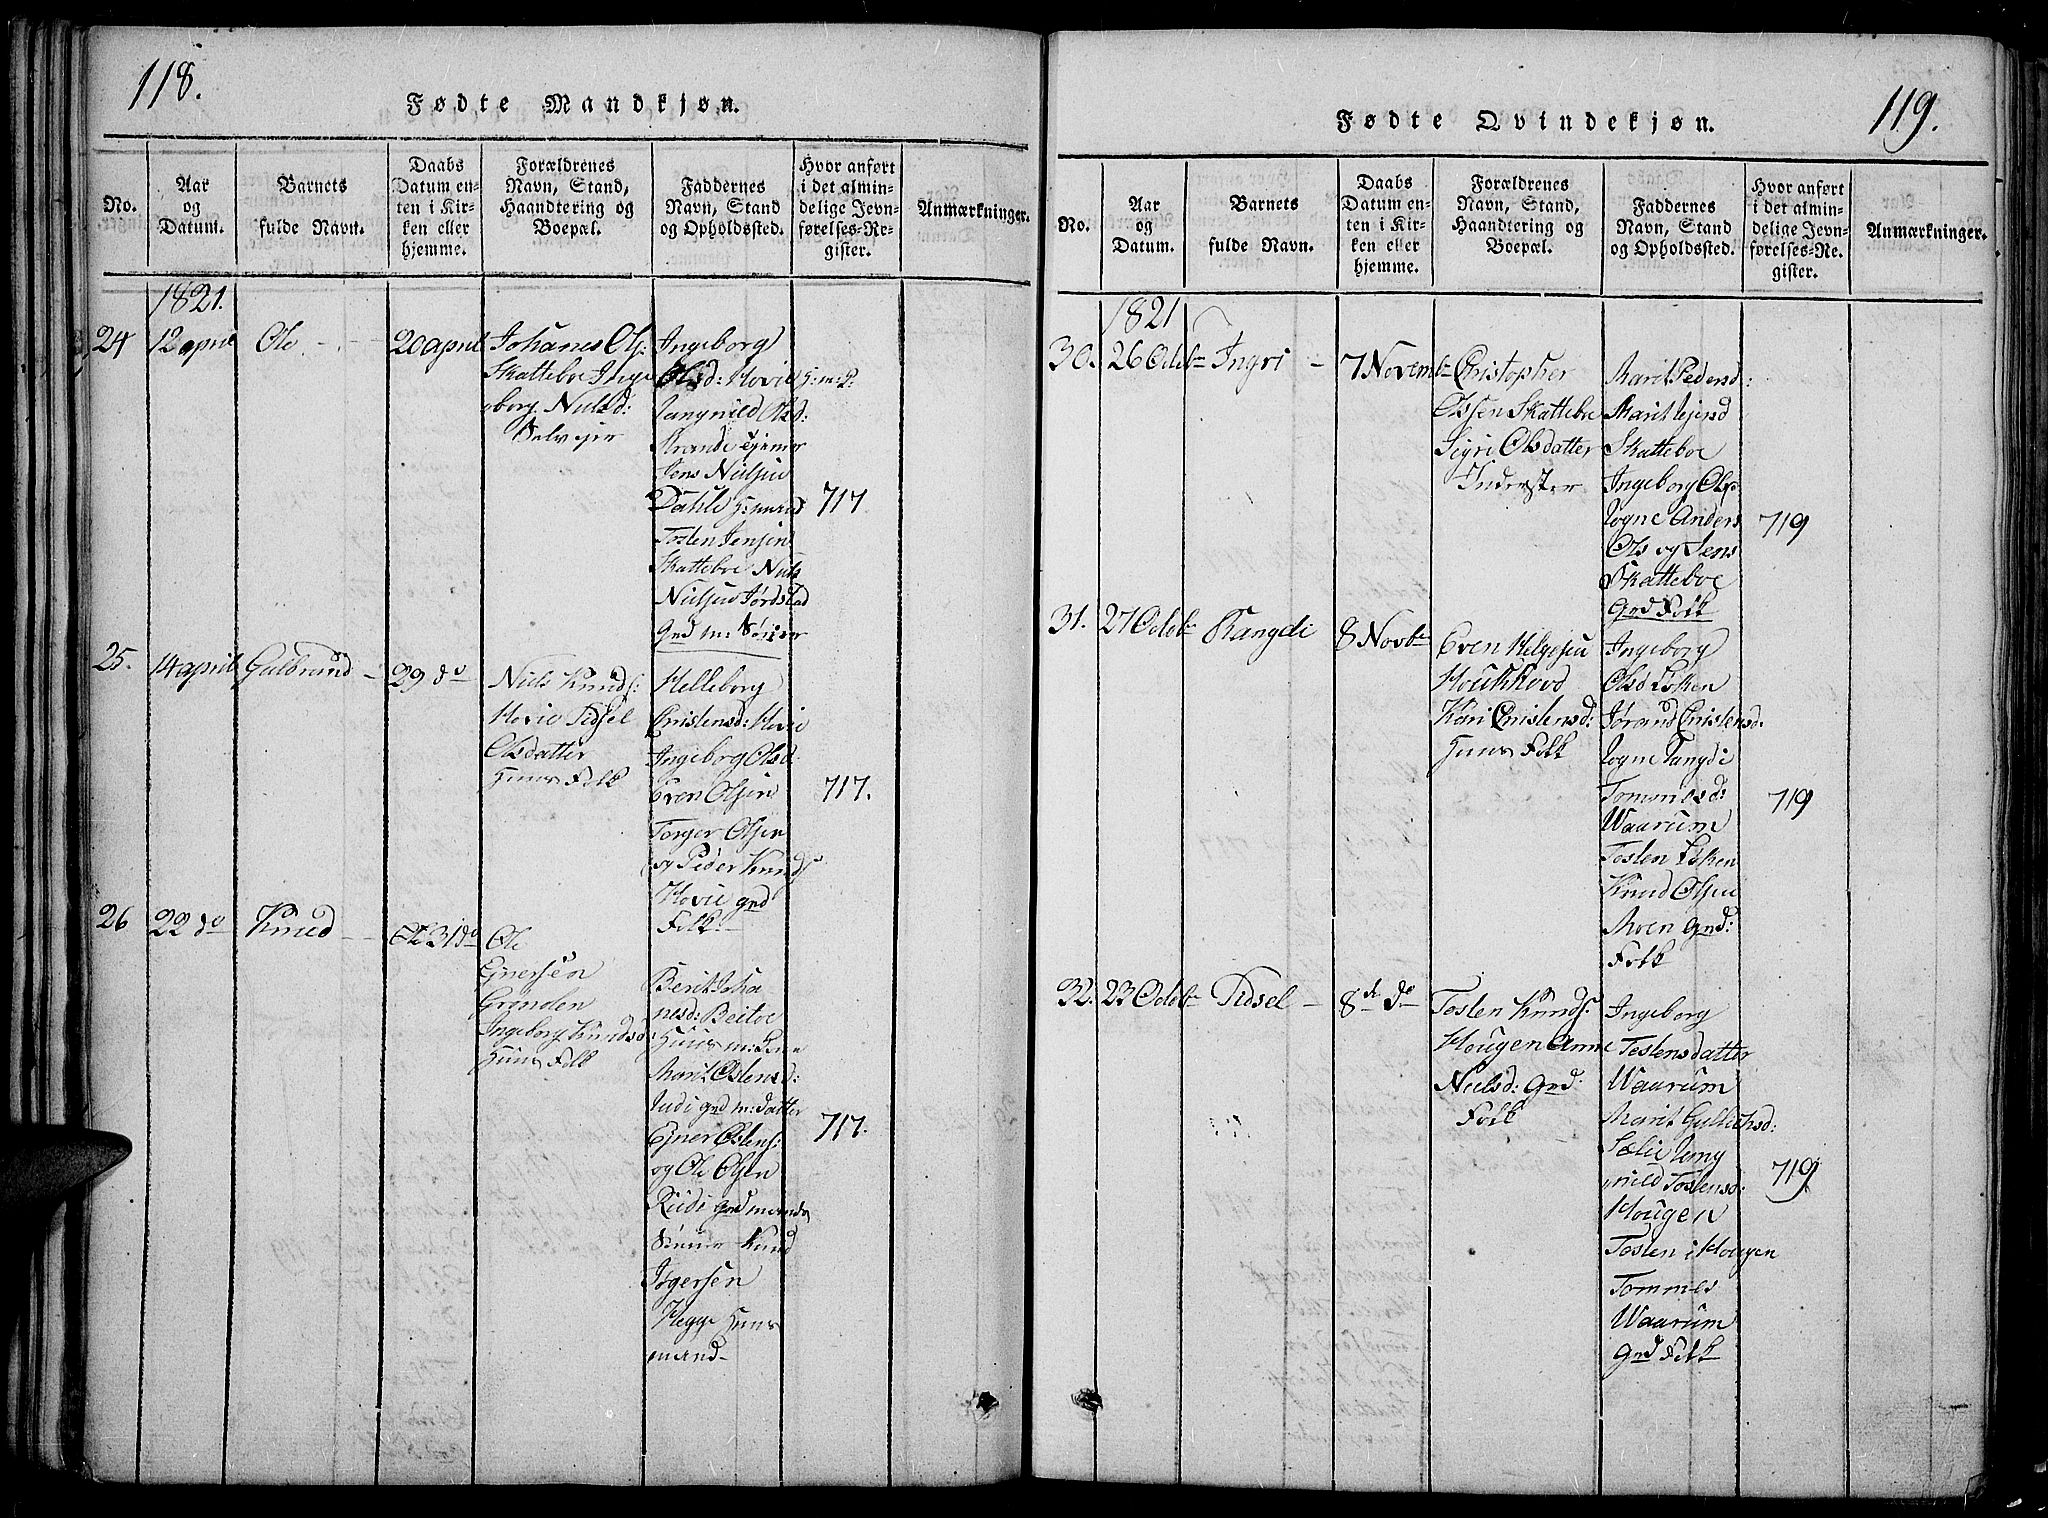 118.
Fødte Mandkjøn.
No.
Aar
og
Datum.
Barnets
fulde Navn.
Daabs
Datum en-
ten i Kir-
ken eller
hjemme.
Forældrenes
Navn, Stand,
Haandtering og
Boepæl.
Faddernes
Navn, Stand
og Opholdssted.
Hvor anført
i det almin-
delige Jevn-
førelses-Re-
gister.
Anmærkninger.
1821.
24
12 april
Ole
20 april
Johanes Ols:
Skatteboe Inge
borg Nielsd:
Selvejer
Ingeborg
Olsd: Hovie
Olsd:
Strande
Jens Nielsen
Dahle
Tosten Jensen
Skatteboe Niels
Nielsen Jördstad
Grd m: Sönner
717
25.
14 april
Gulbrand
29 do
Niels Knuds:
Hovie Tidsel
Olsdatter
Huus Folk
Helleborg
Cristensd: Hovie
Ingeborg Olsd:
Even Olsen
Torger Olsen
og Peder Knuds
Hovie grd
Folk
717.
26
22 do
Knud
31 do
Ole
Ejnersen
Grönden
Ingeborg Knudsd:
Huus Folk
Berit Joha
nesd: Beitoe
Huus m: Kone
Marit Östensd:
Rudi grd m: datter
Ejner Östens:
og Ole Olsen
Rudi grd mands
Sönner Knud
Hegge Huus
mand
717.
119.
Fødte Qvindekjøn.
No.
Aar
og
Datum.
Barnets
fulde Navn.
Daabs
Datum en-
ten i Kir-
ken eller
hjemme.
Forældrenes
Navn, Stand,
Haandtering og
Boepæl.
Faddernes
Navn, Stand
og Opholdssted.
Hvor anført
i det almin-
delige Jevn-
førelses-Re-
gister.
Anmærkninger.
1821
30.
26 Octobr
Ingri
7 Novembr
Christopher
Olsen Skatteboe
Sigri Olsdatter
Inderster
Marit Pedersd:
Marit
Skatteboe
Ingeborg Ols:
Rogne Anders
Ols og Jens
Skatteboe
Grd Folk
719
31.
27 Octobr
Rangdi
8 Novbr
Even Helgesen
Houkkood
Kari Cristensd:
Huus Folk
Ingeborg
Olsd Löken
Jörand Cristensd.
Rogne Rangdi
Tommesd:
Waarum
Tosten Löken
Knud Olsen
Moen grd:
Folk
719
32.
23 Octobr
Tidsel
8de do
Tosten Knuds.
Hougen Anne
Nielsd: Grd:
Folk
Ingeborg
Tostensdatter
Waarum
Marit Gulleichsd:
Sælie Rang
nild Tostensd:
Hougen
Tosten i Hougen
Tommes
Waarum
Grd Folk
719